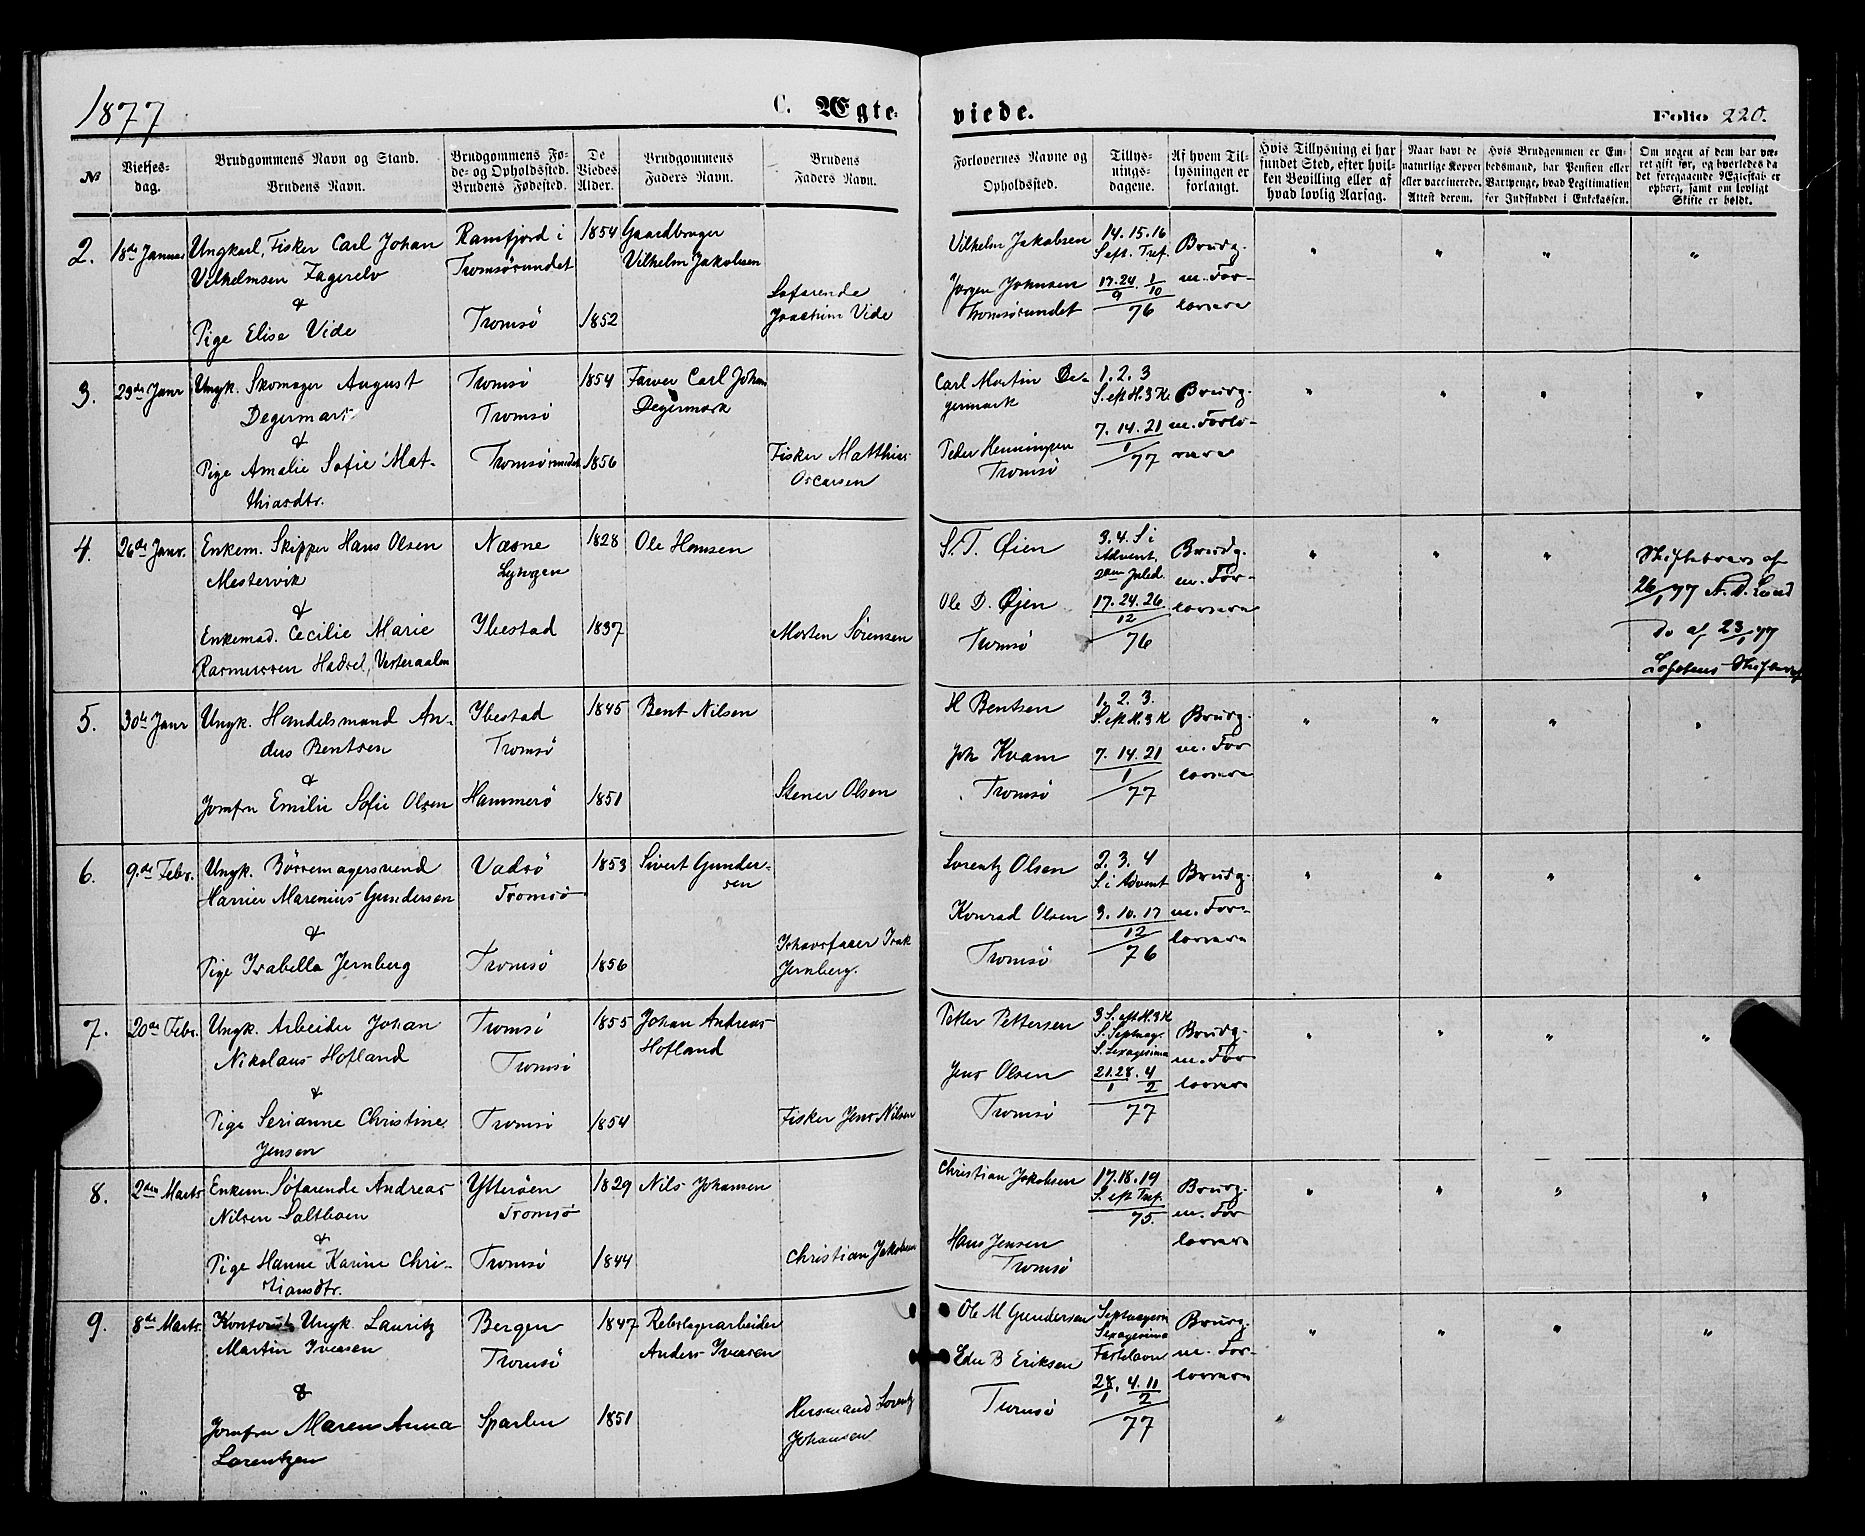 1877
C. Ægte-
viede.
Folio 220.
№
Vielses-
dag.
Brudgommens Navn og Stand.
Brudens Navn.
Brudgommens Fø-
de- og Opholdssted.
Brudens Fødested.
De
Viedes
Alder.
Brudgommens
Faders Navn.
Brudens
Faders Navn.
Forlovernes Navne og
Opholdssted.
Tillys-
nings-
dagene.
Af hvem Til-
lysningen er
forlangt.
Hvis Tillysning ei har
fundet Sted, efter hvil-
ken Bevilling eller af
hvad lovlig Aarsag.
Naar havt de
naturlige Kopper
eller vaccinerede.
Attest derom.
Hvis Brudgommen er Em-
bedsmand, har Pension eller
Vartpenge, hvad Legitimation
for Indskuddet i Enkekassen.
Om nogen af dem har væ-
ret gift før, og hvorledes da
det foregaaende Ægteskab er
ophørt, samt om lovligt
Skifte er holdt.
2.
18de Januar
Ungkarl, Fisker Carl Johan
Vilhelmsen Fagerelv
&
Pige Elise Vide
Ramfjord i
Tromsøsundet
Tromsø
1854
1852
Gaardbruger
Vilhelm Jakobsen
Søfarende
Joachim Vide
Vilhelm Jakobsen
Jørgen Johnsen
Tromsøsundet
14. 15. 16
S. eft. Tref.
17. 24/9. 1/10
76
Brudg.
m. For-
lovere
"
"
"
"
3.
23de Janr
Ungk. Skomager August
Degermark
&
Pige Amalie Sofie Mat-
thiasdtr.
Tromsø
Tromsø
Tromsøsundet
1854
1856
Farver Carl Johan
Degermark
Fisker Matthias
Oscarsen
Carl Martin De-
germark
Peder Henningsen
Tromsø
1. 2. 3
S. eft H. 3 K.
7. 14. 21
1
77
Brudg.
m. Forlo-
vere
"
"
"
"
4.
26de Janr.
Enkem. Skipper Hans Olsen
Mestervik
&
Enkemad. Cecilie Marie
Rasmussen Hadsel, Vesteraalen
Næsne
Lyksgen
Ibestad
1828
1837
Ole Hansen
Morten Sørensen
S. T. Øien
Ole D. Øjen
Tromsø
3. 4. S i
Advent.
2den Juled.
17. 24. 26.
12
76
Brudg.
m. For-
lovere
"
"
"
Skiftebrev af
26/1 77 A. D. Lund
Do af 23/1 77
Lofotens Skifteret
5.
30de Janr
Ungk. Handelsmand An-
ders Bentsen
&
Jomfru Emilie Sofie Olsen
Ibestad
Tromsø
Hammerø
1845
1851
Bent Nilsen
Stener Olsen
H Bentsen
Joh Kvam
Tromsø
1. 2. 3.
S. eft H. 3 K
7. 14. 21
1
77
Brudg.
m. For
lovere
"
"
"
"
6.
9de Febr.
Ungk. Børsemagersvend
Harrier Marenius Gundersen
&
Pige Isabella Jernberg
Vadsø
Tromsø
Tromsø
1853
1856
Sivert Gunder-
sen
Ishavsfarer Isak
Jernberg.
Lorentz Olsen
Konrad Olsen
Tromsø
2. 3. 4
S. i Advent
3. 10. 17
12
76
Brudg.
m. For-
lovere
"
"
"
"
7.
20de Febr.
Ungk. Arbeider Johan
Nikolaus Hofland
&
Pige Serianne Christine
Jensen
Tromsø
Tromsø
Tromsø
1855
1854
Johan Andreas
Hofland
Fisker Jens Nilsen
Petter Pettersen
Jens Olsen
Tromsø
3 S. eft H. 3 K
S. Septuag.
S. Sexagesima
21.28/1. 4/2
77
Brudg.
m. For
lovere
"
"
"
"
8.
2den Marts
Enkem. Søfarende Andreas
Nilsen Saltboen
&
Pige Hanne Karine Chri-
stiansdtr.
Ytterøen
Tromsø
Tromsø
1829
1844
Nils Johansen
Christian Jakobsen
Christian Jakobsen
Hans Jensen
Tromsø
17. 18. 19
S. eft Tref.
75.
Brudg.
m. For
lovere
"
"
"
"
9.
8de Marts
Kontorist Ungk. Lauritz
Martin Iversen
&
Jomfru Maren Anna
Lorentzen
Bergen
Tromsø
Sparbu
1847
1851
Rebslagerarbeider
Anders Iversen
Husmand Lorentz
Johansen
Ole M Gundersen
Edv B Eriksen
Tromsø
Septuagesi
Sexagesima
Fastelavn
28/1. 4. 11/2
77
Brudg.
m. For-
lovere
"
"
"
"